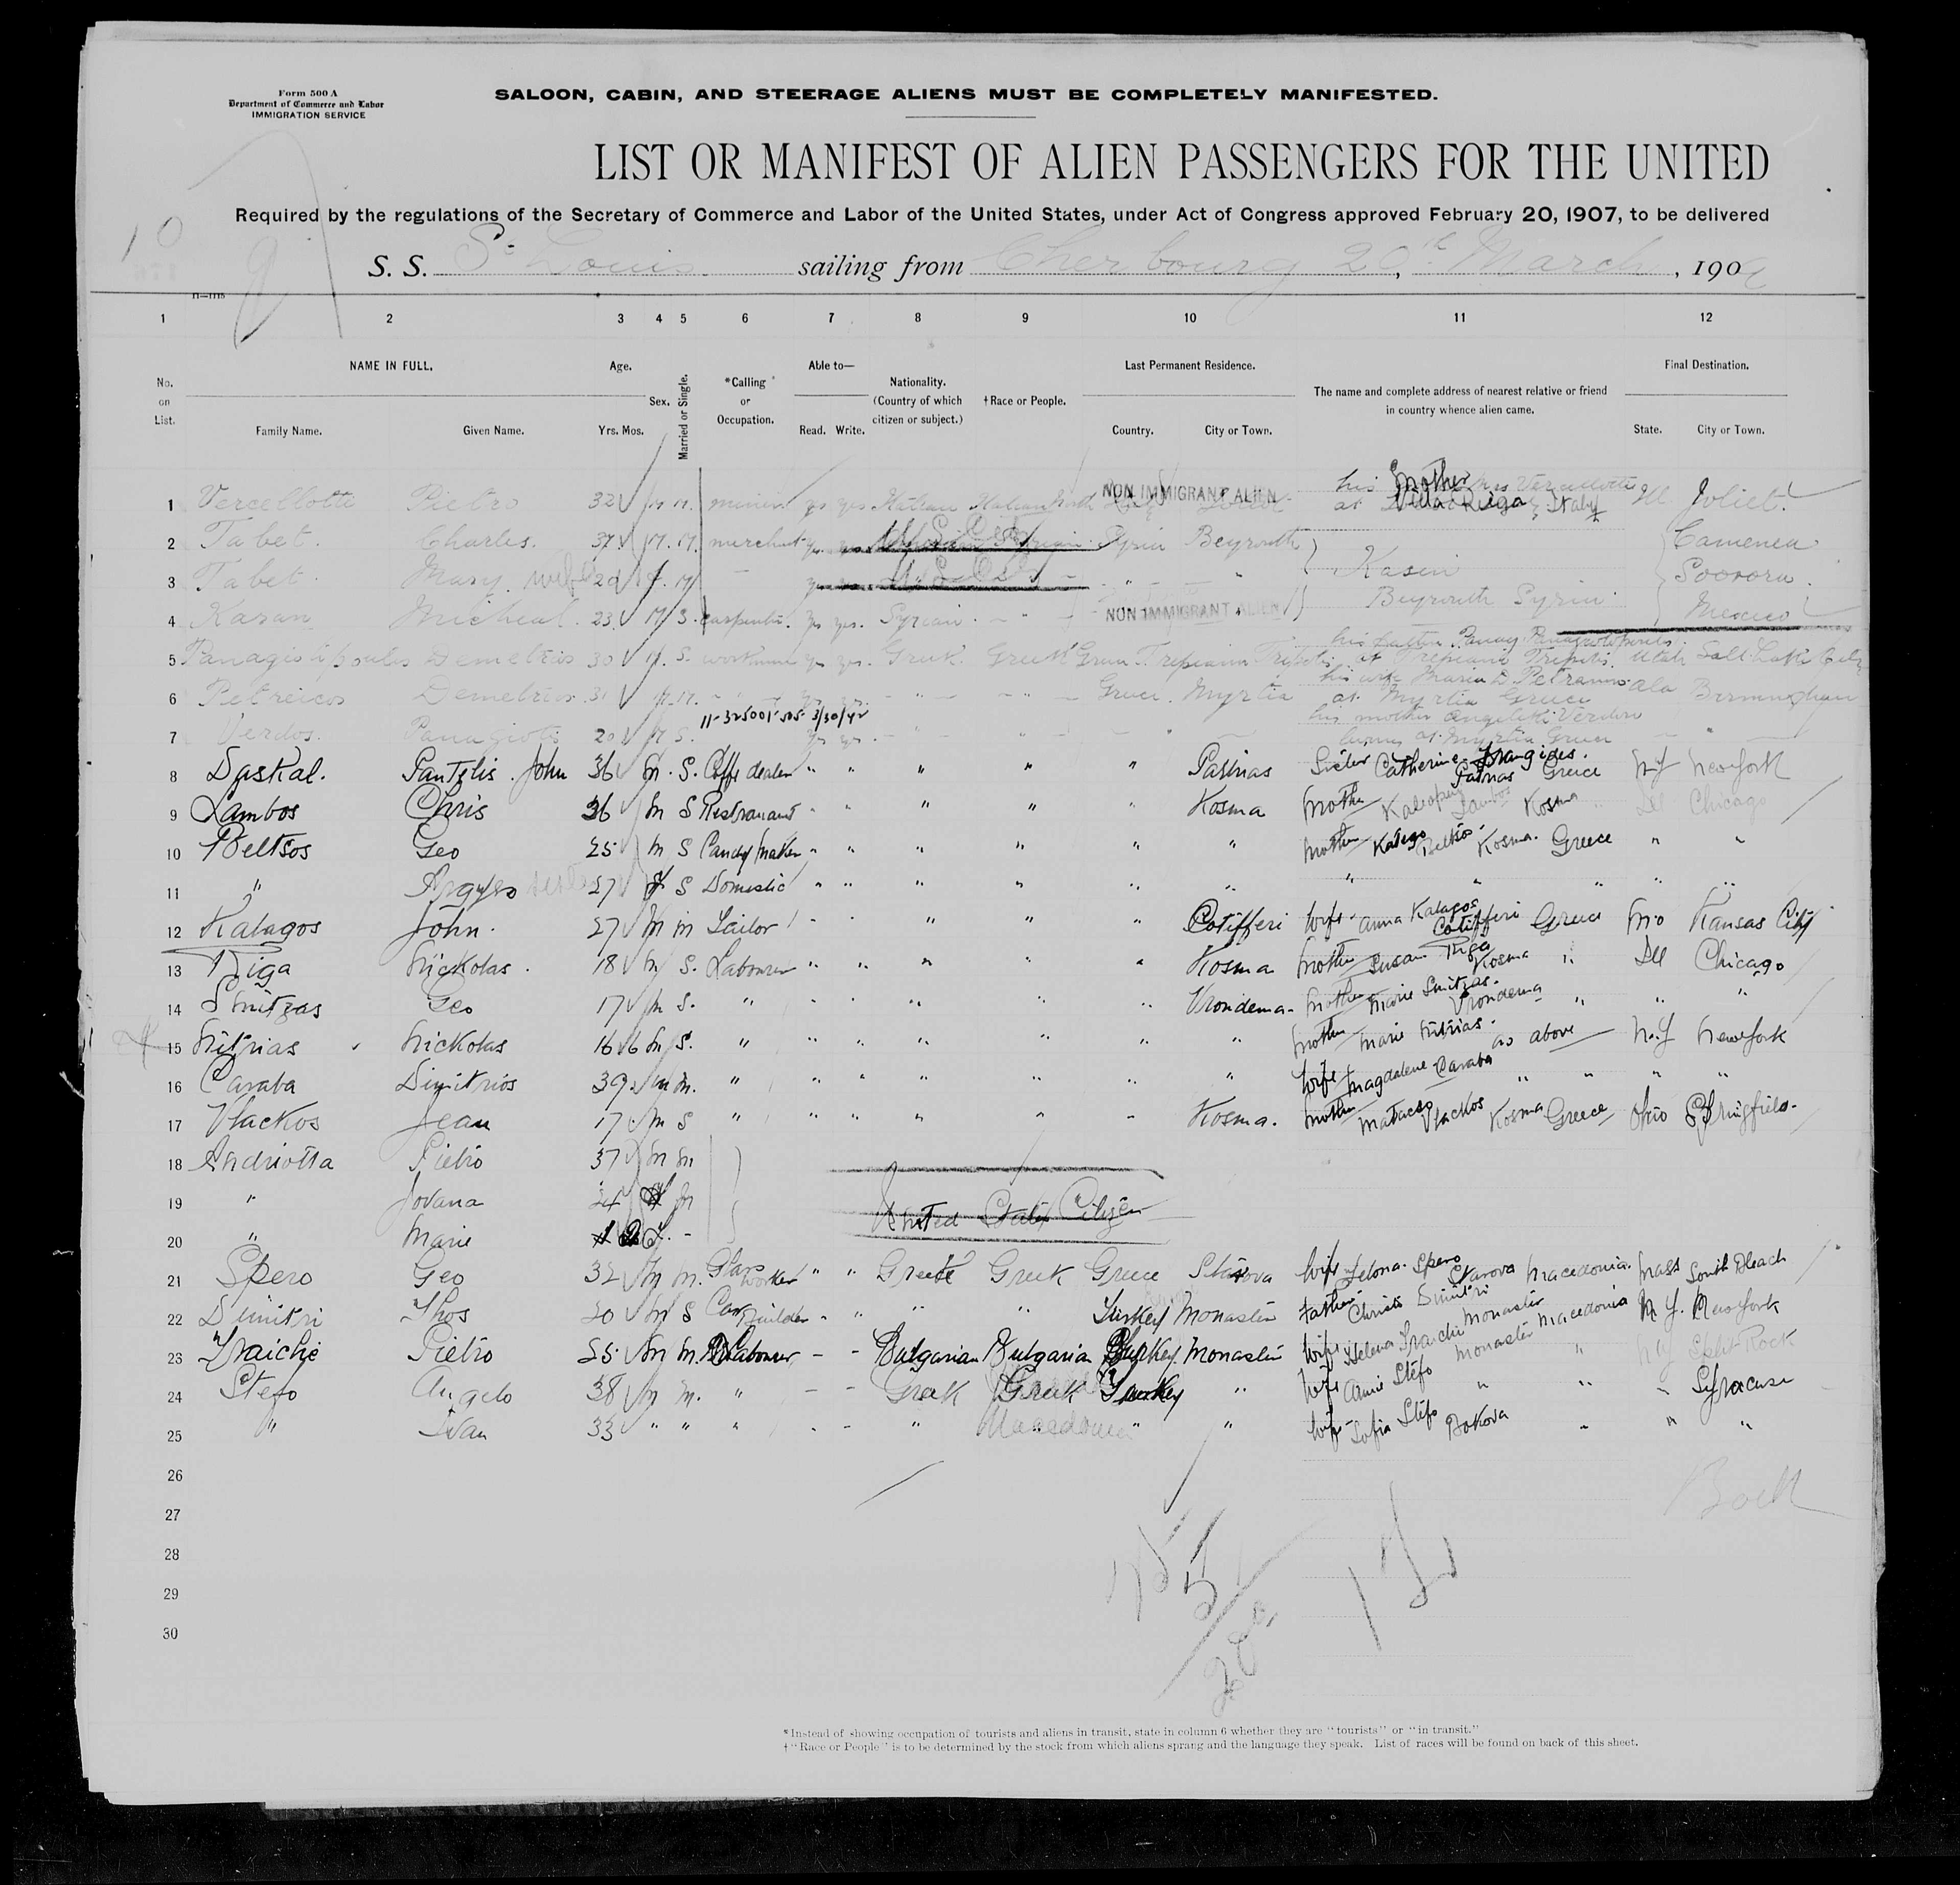 Form 500 A
Department of Commerce and Labor
IMMIGRATION SERVICE
SALOON, CABIN, AND STEERAGE ALIENS MUST BE COMPLETELY MANIFESTED.
LIST OR MANIFEST OF ALIEN PASSENGERS FOR THE UNITED
Required by the regulations of the Secretary of Commerce and Labor of the United States, under Act of Congress approved February 20, 1907, to be delivered
10
S. S. St Louis sailing from Cherbourg 20th March, 1909
1 2 3 4 5 6 7 8 9 10 11 12
No. on List.
NAME IN FULL.
Family Name. Given Name.
Age.
Yrs. Mos.
Sex.
Married or Single.
*Calling or Occupation.
Able to—
Read. Write.
Nationality. (Country of which citizen or subject.)
†Race or People.
Last Permanent Residence.
Country. City or Town.
The name and complete address of nearest relative or friend in country whence alien came.
Final Destination.
State. City or Town.
1 Vercellotti Pietro 32 M. M. miner yes yes Italian Italian North NON IMMIGRANT ALIEN his Mother Mrs Vercellotti at Villa Riega Italy Ill Joliet
2 Tabet. Charles. 37 M. M. merchant yes Syrian Syria Beyrouth
3 Tabet. Mary. wife 29 f. M " Kasin
Beyrouth Syria
Camenea
Soorora
Mexico
4 Karan Micheal. 23 M S. carpenter. yes yes. Syrian. NON IMMIGRANT ALIEN
5 Panagiotopoulos Demetrios 30 M. S. workman yes yes. Greek. Greek Greece Trepiana Tripolis his father Panag. Panagiotopoulos at Trepiana Tripolis Utah Salt Lake City
6 Petreicos Demetrios 31 M. M. Greece. Myrtia his wife Maria D. at Myrtia Greece Ala Birmingham
11-325001-505-3/30/42
7 Verdos. Panagiotis 20 M S. yes yes. his mother Angeliki Verdou living at Myrtia Greece
8 Daskal. Pantzlis. John 36 M. S. Coffe dealer " " " " " Patnas Sister Catherine Frangides. Patnas Greece N.Y New York
9 Lambos Chris 36 M S Restranant " " " " " Kosma Mother Lambos Kosma Ill Chicago
10 Beltsos Geo 25 M S Candy Maker " " " " " " Mother Beltsos Kosma. Greece " "
11 " Argyro 27 f S Domestic " " " " " " " " " " "
12 Kalagos John. 27 M M Tailor " " " " " Cotifferi Wife. Anna Kalagos Cotifferi Greece Mo Kansas City
13 Riga Nickolas. 18 M S. Labourer " " " " " Kosma Mother Susan Riga Kosma " Ill Chicago
14 Smitzas Geo 17 M S. " " " " " " Vrondema. Mother Marie Smitzas. Vrondema " " "
15 Nitrias Nickolas 16 M S. " " " " " " " Mother Marie Nitrias. as above N.Y New York
16 Caraba Dimitrios 39 M M. " " " " " " " Wife Magdalene Caraba " " " "
17 Vlackos Jean 17 M S " " " " " " Kosma. Mother Vlackos Kosma Greece Ohio Springfield.
18 Andriotta Pietro 37 M M
19 " Jovana 24 f M
20 " Marie f. -
United States Citizen
21 Spero Geo 32 M M. Glass worker " " Greek Greek Greece Starova Wife Spero Starova Macedonia. Mass South Beach
22 Dimitri Thos 20 M S Car Builder " " " " Turkey Monastir Father Christo Dimitri Monastir Macedonia N.Y. New York
23 Traiche Pietro 25 M M. Labourer - - Bulgarian Bulgarian Turkey Monastir Wife Helena Traiche Monastir " N.Y Split Rock
24 Stefo Angelo 38 M M. " - - Greek Greek Turkey " Wife Annie Stefo " " " Syracuse
25 " Ivan 33 " " " - - " Macedonian " " Wife Sofia Stefo Bukova " " "
26
27
28
29
30
*Instead of showing occupation of tourists and aliens in transit, state in column 6 whether they are "tourists" or "in transit."
†"Race or People" is to be determined by the stock from which aliens sprang and the language they speak. List of races will be found on back of this sheet.